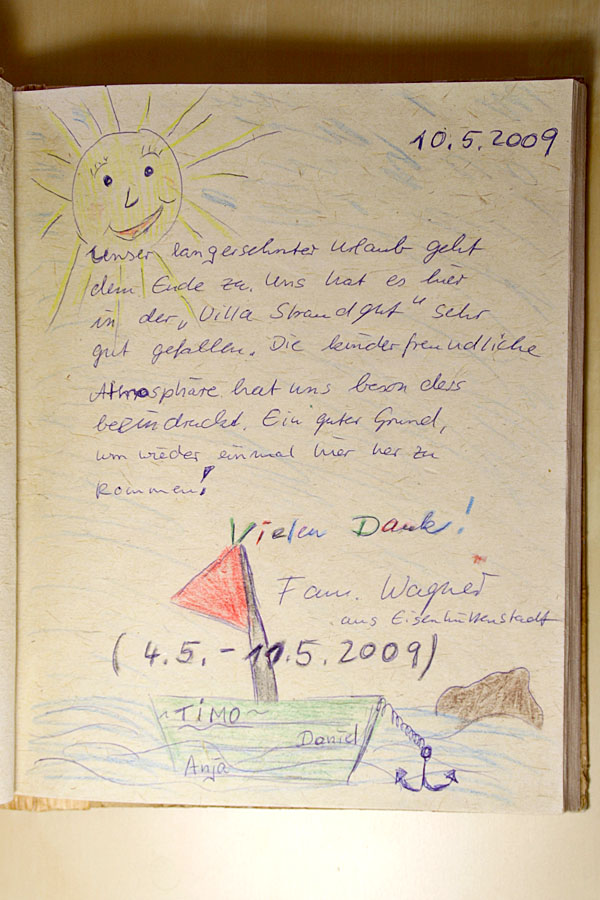 10.5.2009
Unser langersehnter Urlaub geht
dem Ende zu. Uns hat es hier
in der „Villa Strandgut" sehr
gut gefallen. Die kinderfreundliche
Atmosphäre hat uns besonders
beeindruckt. Ein guter Grund,
um wieder einmal hier her zu
kommen!
Vielen Dank!
Fam. Wagner
aus Eisenhüttenstadt
(4.5. - 11.5.2009)
~TIMO~
Daniel
Anja